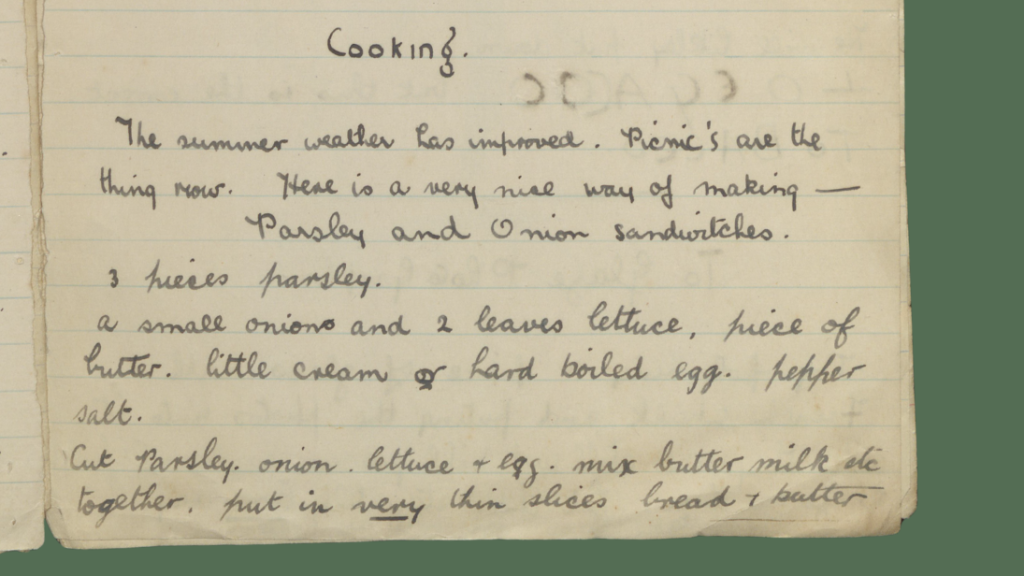 Cooking.
The summer weather has improved. Picnic's are the
thing now. Here is a very nice way of making —
Parsley and Onion sandwitches.
3 pieces parsley.
a small onion and 2 leaves lettuce, piece of
butter. little cream or hard boiled egg. pepper
salt.
Cut Parsley. onion. lettuce + egg. mix butter milk etc
together. put in very thin slices bread + butter